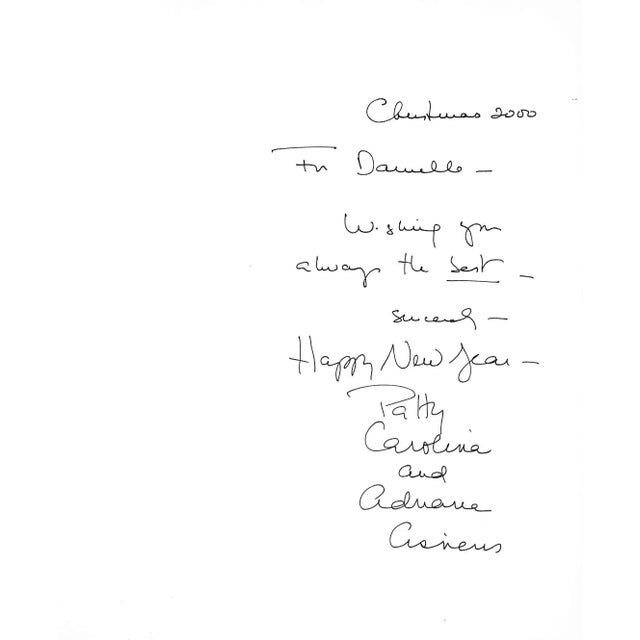 Christmas 2000
For Danielle —
Wishing you
always the best —
sincerely —
Happy New Year —
Patty
Carolina
and
Adriana